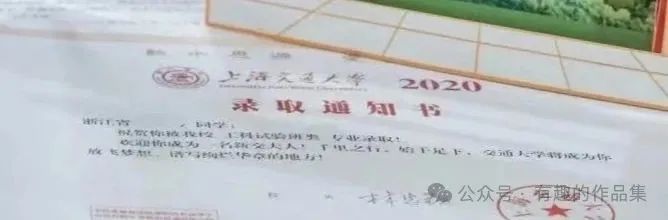 饮水思源
上海交通大学 2020
SHANGHAI JIAO TONG UNIVERSITY
录取通知书
浙江省 同学：
祝贺你被我校 工科试验班类 专业录取！
欢迎你成为一名新交大人！千里之行，始于足下，交通大学将成为你
放飞梦想、谱写绚烂华章的地方！
校 长
公众号·有趣的作品集